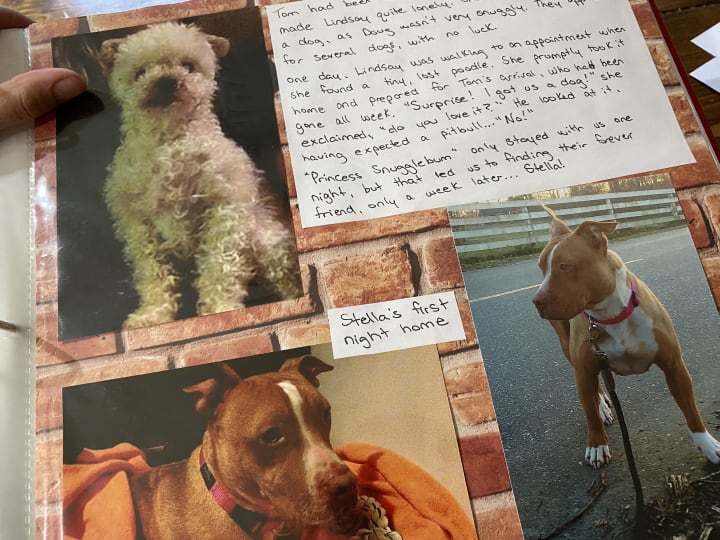 Tom had been
made Lindsay quite lonely.
a dog, as Doug wasn't very snuggly. They
for several dogs, with no luck.
One day, Lindsay was walking to an appointment when
she found a tiny, lost poodle. She promptly took it
home and prepared for Tom's arrival, who had been
gone all week. "Surprise! I got us a dog!" she
exclaimed, "do you love it?." He looked at it,
having expected a pitbull... "No!"
"Princess Snugglebum" only stayed with us one
night, but that led us to finding their forever
friend, only a week later... Stella!
Stella's first
night home